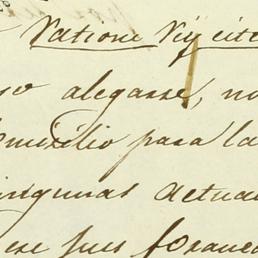 ratione rij cite
so alegasse, no
omicilio para la
ningunas actua
ese Juez foraneo